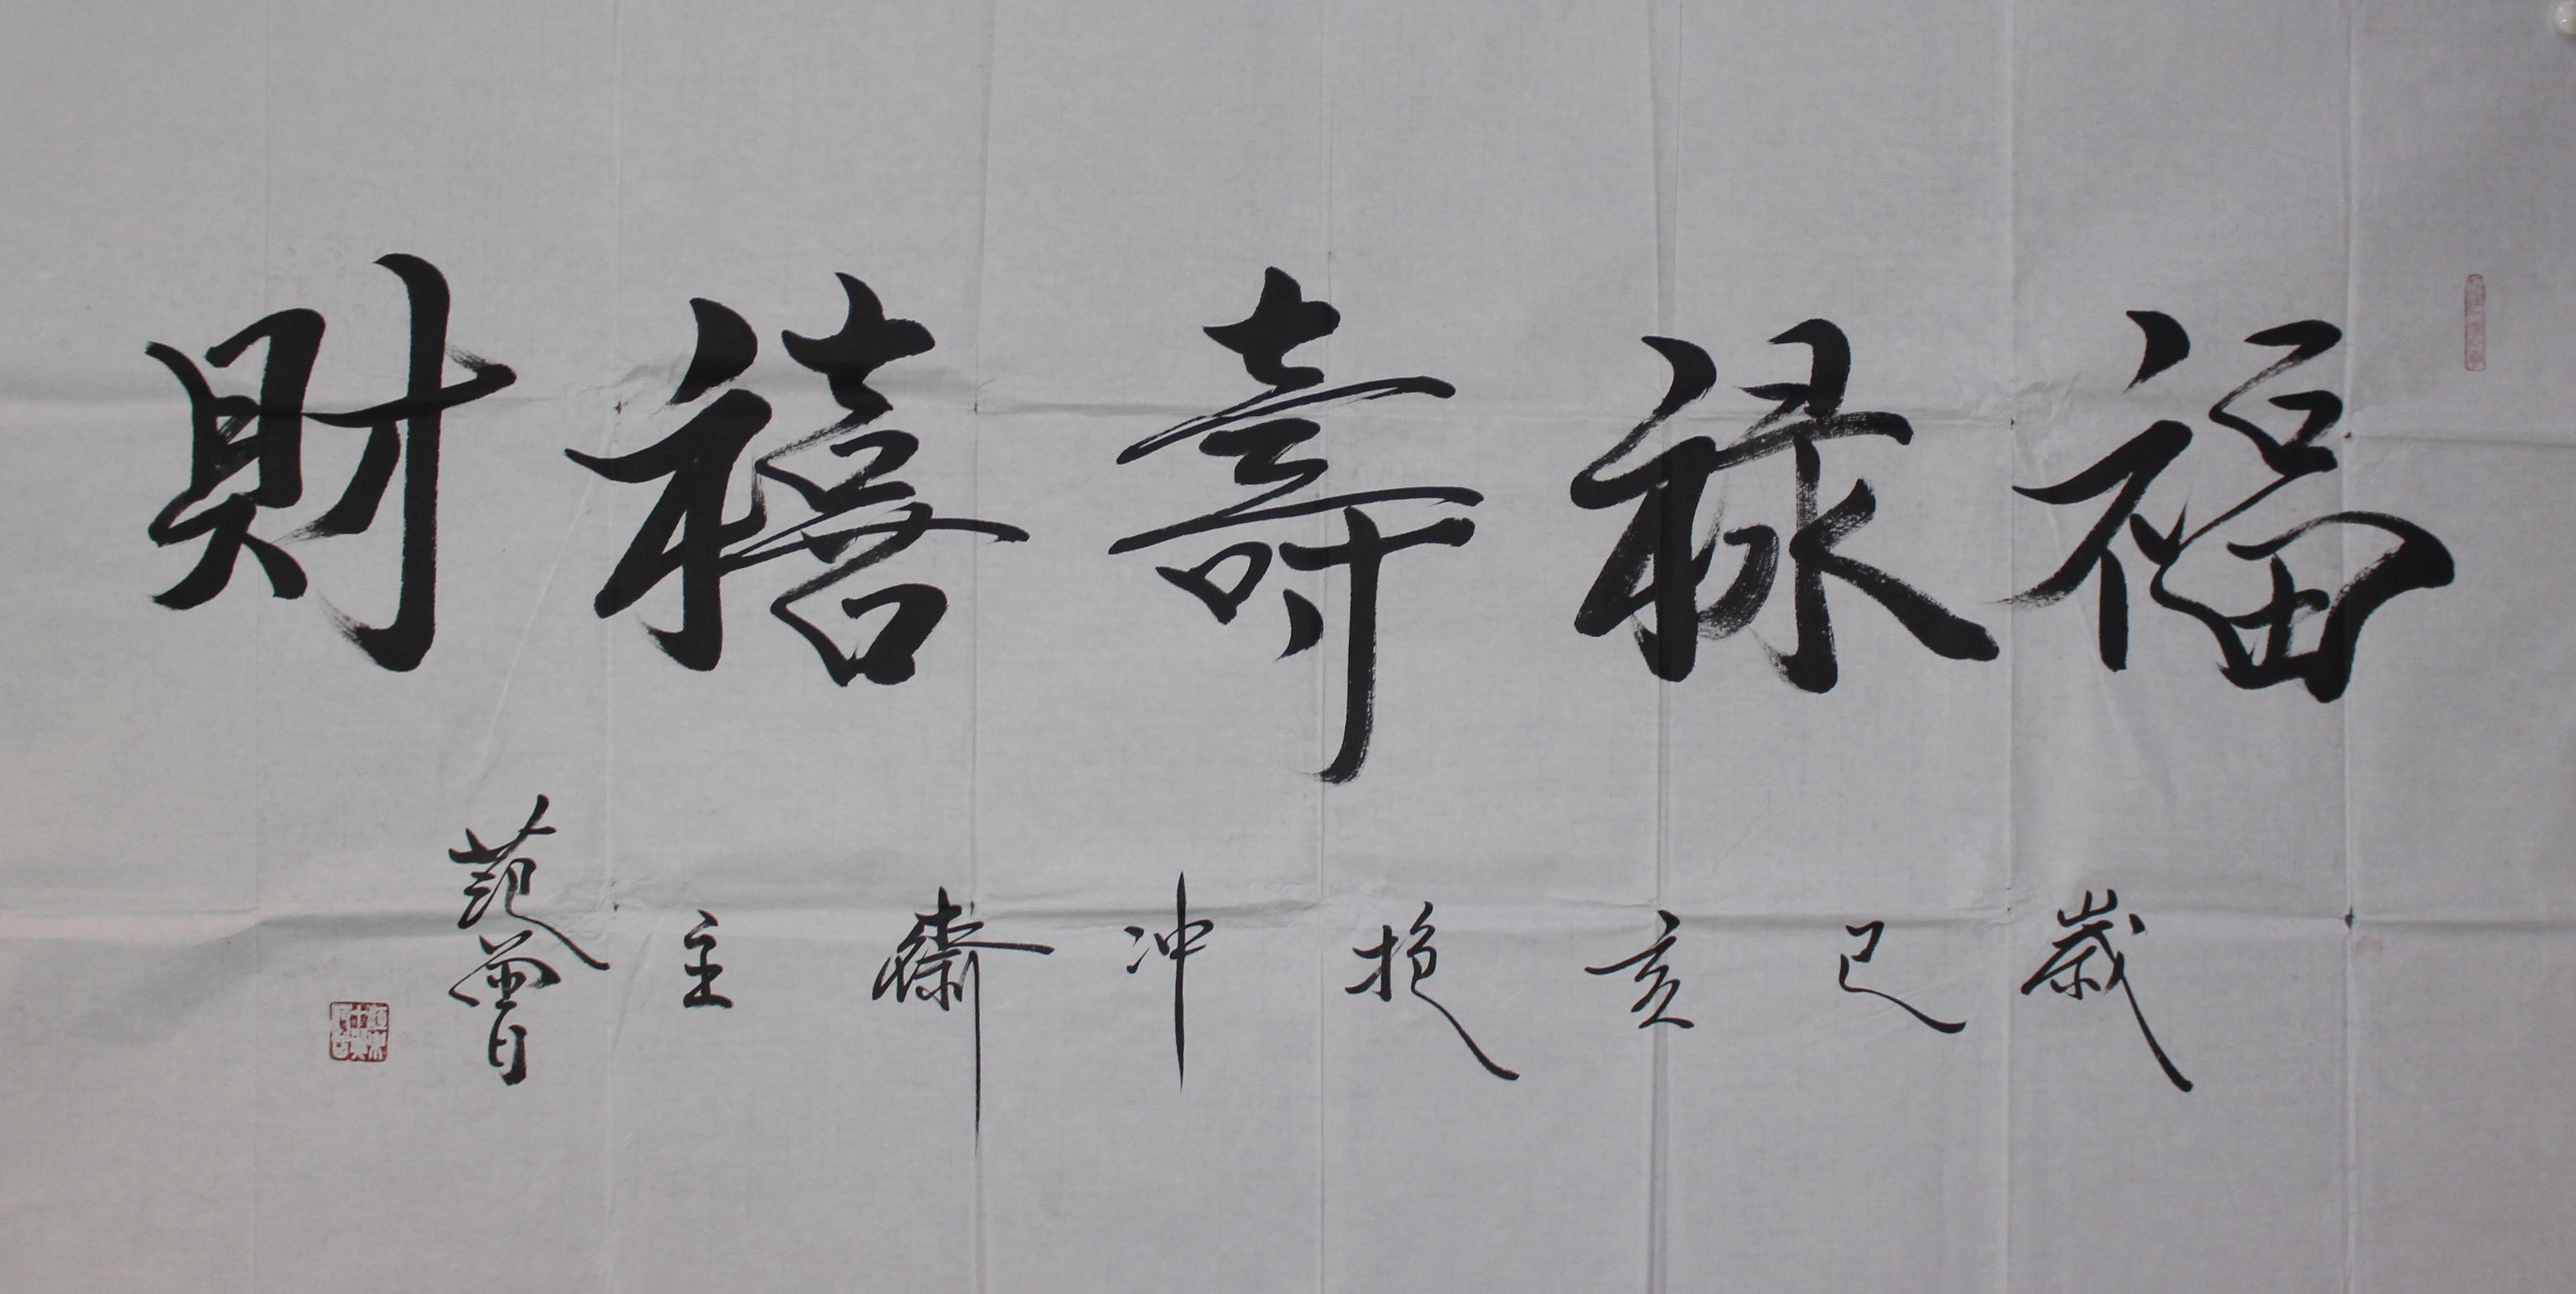 福祿壽禧財
歲己亥抱冲齋主范曾